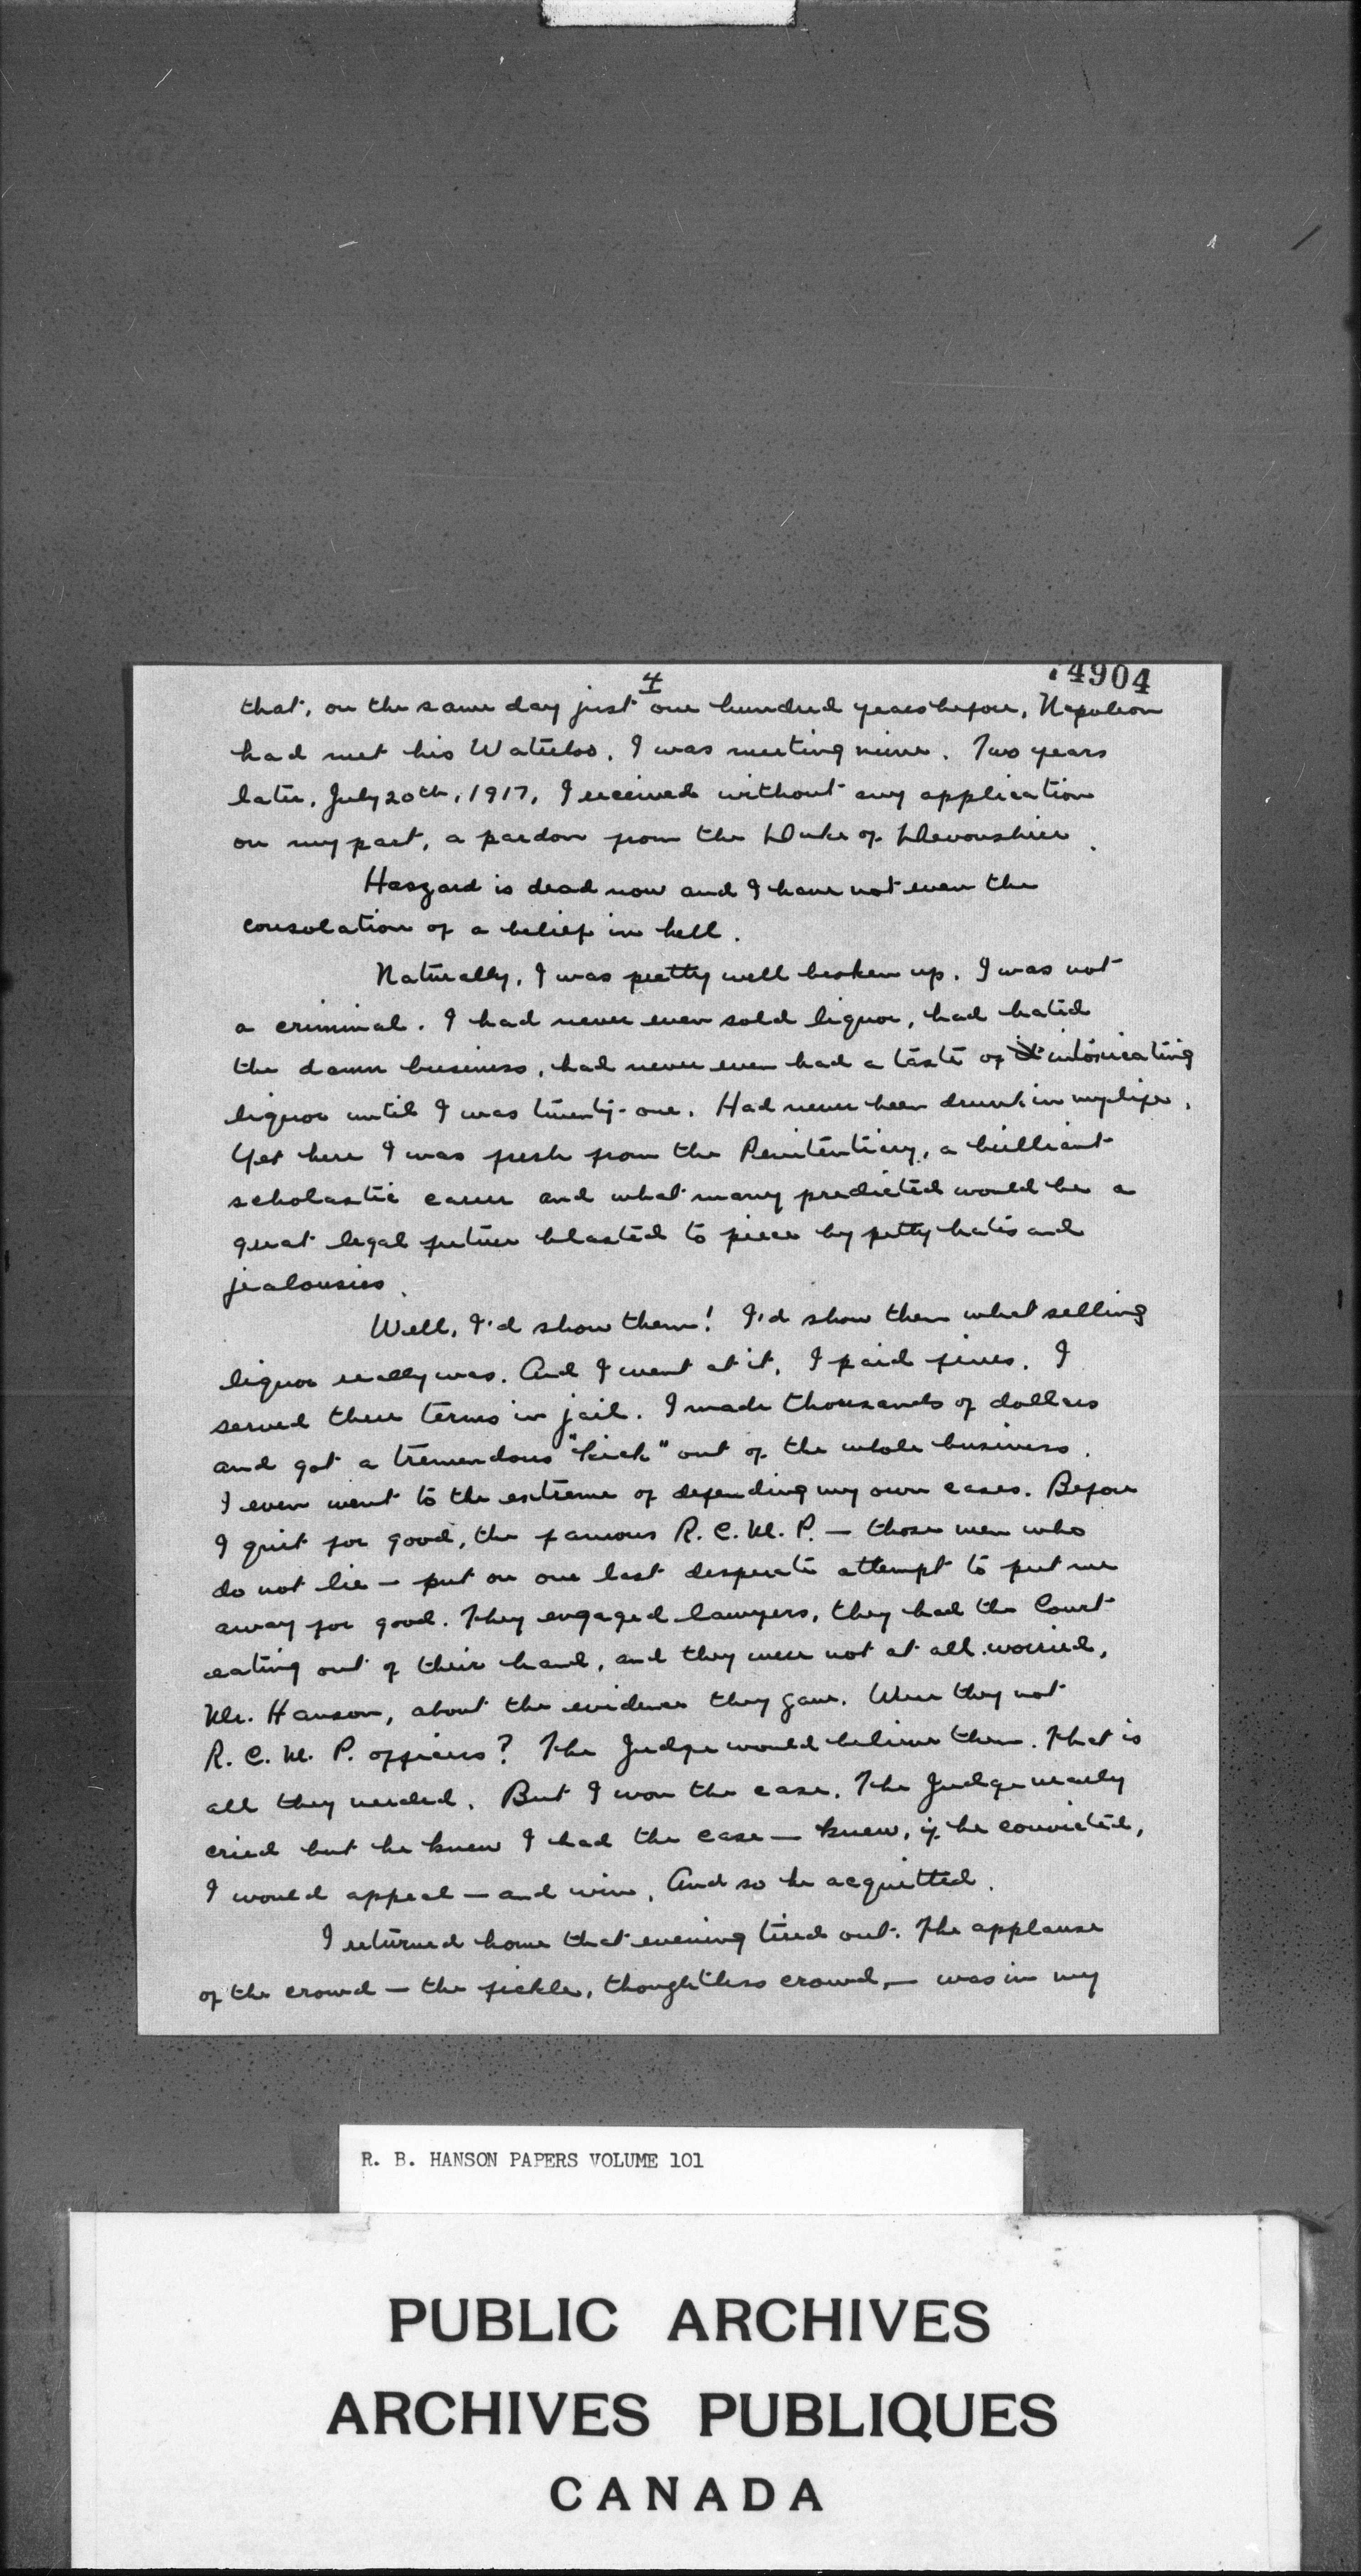 4
74904
that, on the same day just one hundred years before, Napoleon
had met his Waterloo, I was meeting mine. Two years
later, July 20th, 1917, I received without any application
on my part, a pardon from the Duke of Devonshire.
Haszard is dead now and I have not even the
consolation of a belief in hell.
Naturally, I was pretty well broken up. I was not
a criminal. I had never even sold liquor, had hated
the damn business, had never even had a taste of intoxicating
liquor until I was twenty-one. Had never been drunk in my life.
Yet here I was fresh from the Penitentiary, a brilliant
scholastic career and what many predicted would be a
great legal future blasted to pieces by petty hates and
jealousies.
Well, I'd show them! I'd show them what selling
liquor really was. And I went at it. I paid fines. I
served three terms in jail. I made thousands of dollars
and got a tremendous "kick" out of the whole business.
I even went to the extreme of defending my own cases. Before
I quit for good, the famous R.C.M.P. — those men who
do not lie — put on one last desperate attempt to put me
away for good. They engaged lawyers, they had the Court
eating out of their hand, and they were not at all worried,
Mr. Hanson, about the evidence they gave. Were they not
R.C.M.P. officers? The Judge would believe them. That is
all they needed. But I won the case. The Judge nearly
cried but he knew I had the case — knew, if he convicted,
I would appeal — and win. And so he acquitted.
I returned home that evening tired out. The applause
of the crowd — the fickle, thoughtless crowd, — was in my
R. B. HANSON PAPERS VOLUME 101
PUBLIC ARCHIVES
ARCHIVES PUBLIQUES
CANADA